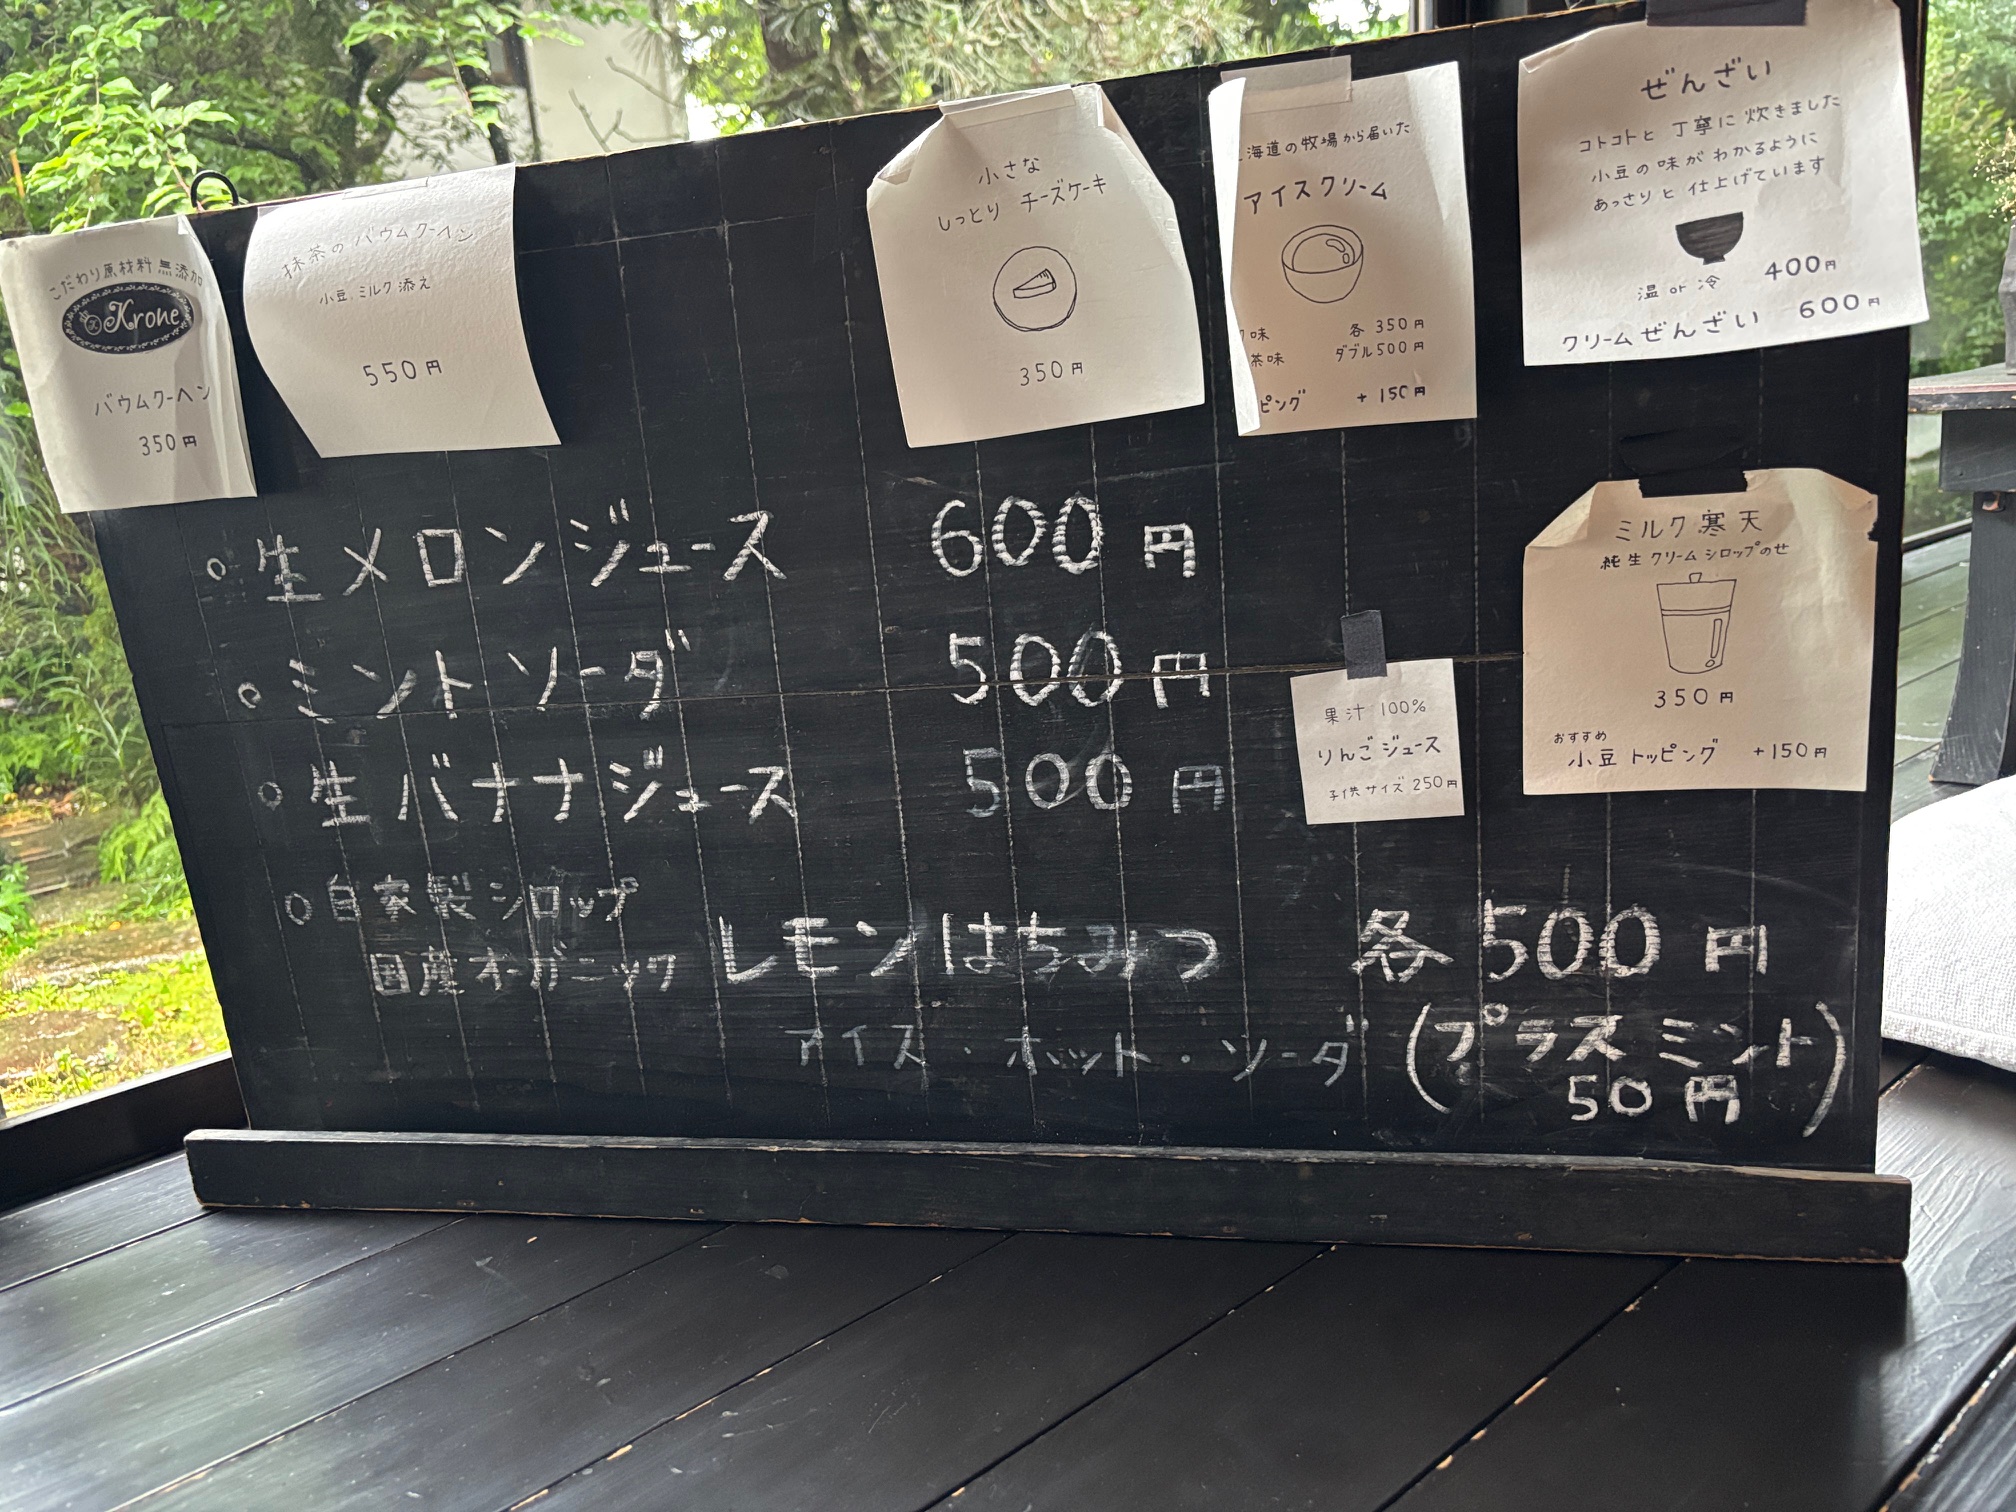 こだわり原材料 無添加
Krone
バウムクーヘン
350円
抹茶の バウムクーヘン
小豆、ミルク添え
550円
小さな
しっとり チーズケーキ
350円
海道の牧場から届いた
アイスクリーム
味 各 350円
茶味 ダブル500円
ピング + 150円
ぜんざい
コトコトと 丁寧に 炊きました
小豆の味が わかるように
あっさりと 仕上げています
400円
温 or 冷
クリームぜんざい 600円
○生メロンジュース 600円
○ミントソーダ 500円
○生バナナジュース 500円
果汁 100%
りんごジュース
子供サイズ 250円
ミルク寒天
純生クリームシロップのせ
350円
おすすめ
小豆トッピング +150円
○自家製シロップ
国産オーガニック レモンはちみつ 各500円
アイス・ホット・ソーダ (プラスミント
50円)